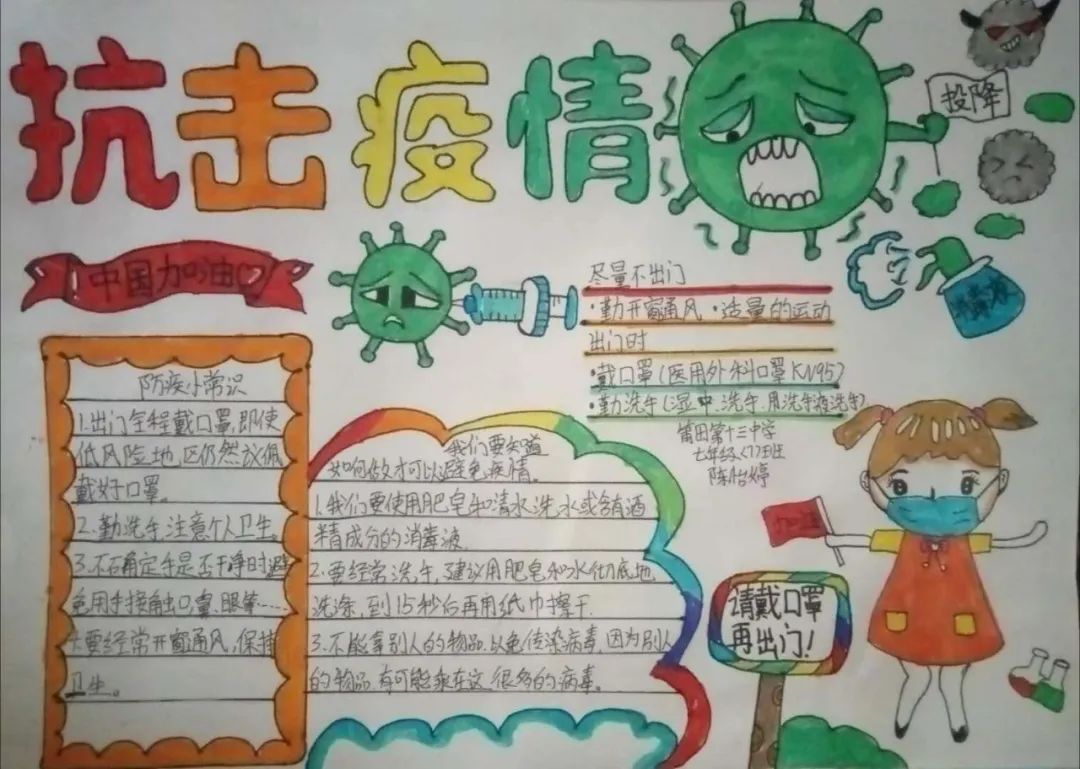 抗击疫情
投降
中国加油
消毒水
尽量不出门
·勤开窗通风 ·适量的运动
出门时
·戴口罩(医用外科口罩KN95)
·勤洗手(湿中.洗手.用洗手液洗手)
莆田第十三中学
七年级(7)班
陈怡婷
防疾小常识
1.出门全程戴口罩,即使
低风险地区仍然议佩
戴好口罩。
2.勤洗手,注意个人卫生。
3.不石角定手是否干净时避
免用手接角出口,鼻,眼等……
4.要经常开窗通风,保持
卫生。
我们要知道
如何做才可以避免疾情。
1.我们要使用肥皂和清水洗,水或含有酒
精成分的消毒液
2.要经常洗手,建议用肥皂和水彻底地
洗涤,到15秒后再用纸巾擦干.
3.不能拿别人的物品.以免传染病毒,因为别人
的物品,有可能乘在这很多的病毒。
加油
请戴口罩
再出门!